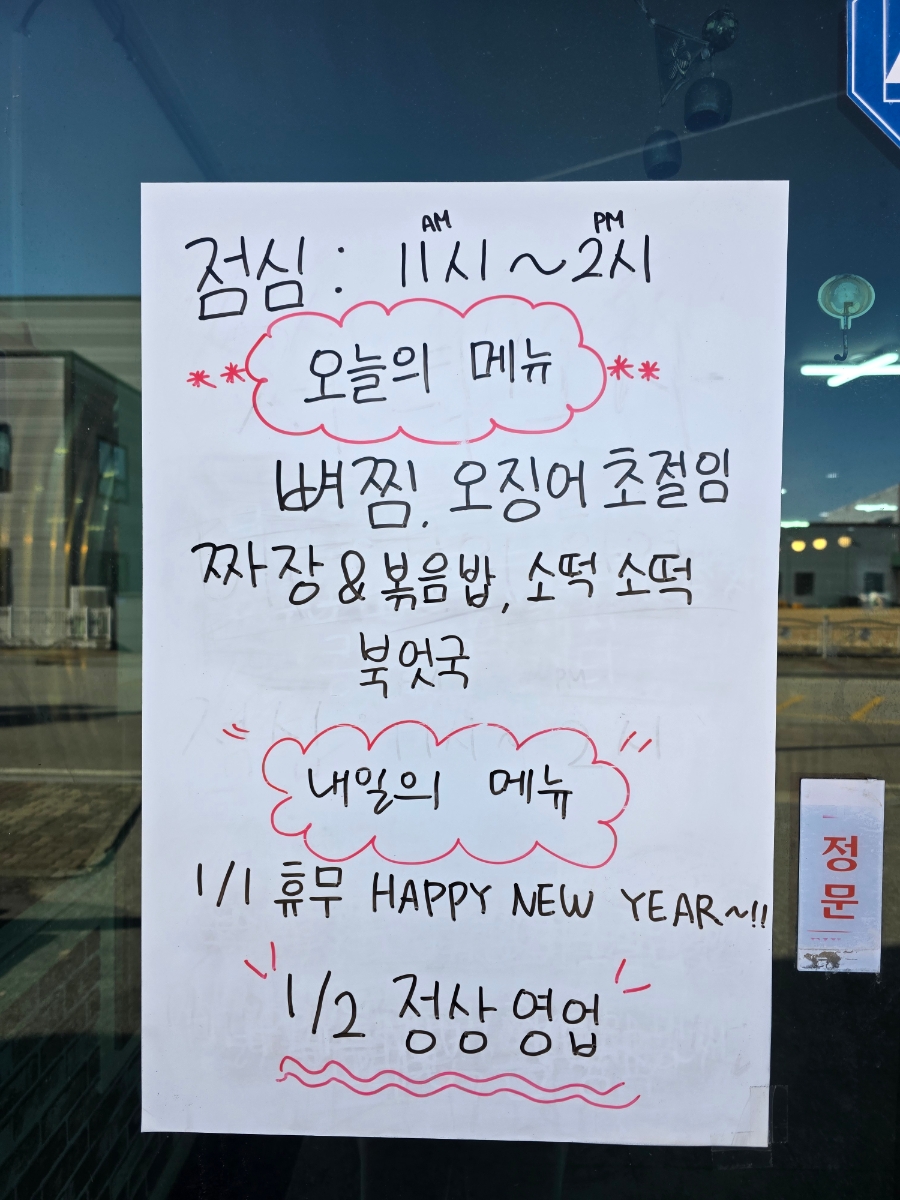 AM PM
점심 : 11시 ~ 2시
** 오늘의 메뉴 **
뼈찜. 오징어 초절임
짜장 & 볶음밥, 소떡 소떡
북엇국
내일의 메뉴
1/1 휴무 HAPPY NEW YEAR~!!
1/2 정상 영업
정문